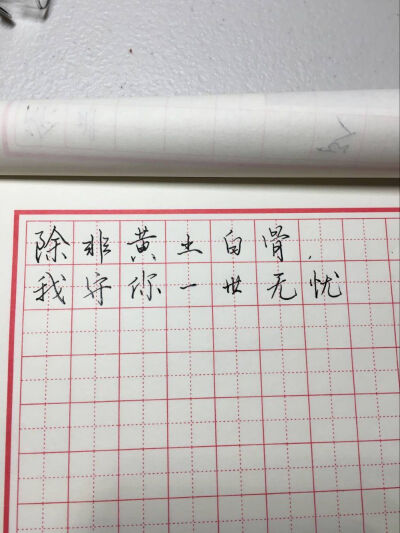 除非黄土白骨，
我守你一世无忧